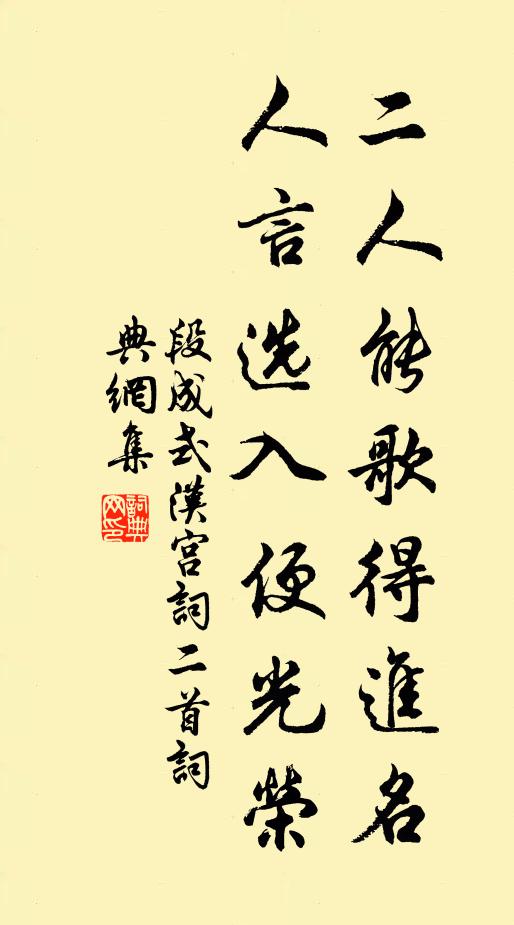 二人能歌得進名
人言选入便光榮
段成式漢宮詞二首詞
典網集
詞典
网印